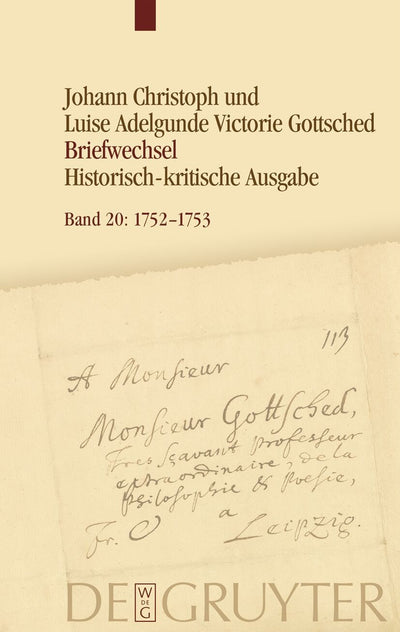 Johann Christoph und
Luise Adelgunde Victorie Gottsched
Briefwechsel
Historisch-kritische Ausgabe
Band 20: 1752–1753
113
A Monsieur
Monsieur Gottsched,
Tres sçavant professeur
extraordinaire, de la
Philosophie & Poësie,
Fr. a
Leipzig.
DE GRUYTER
W
DE
G